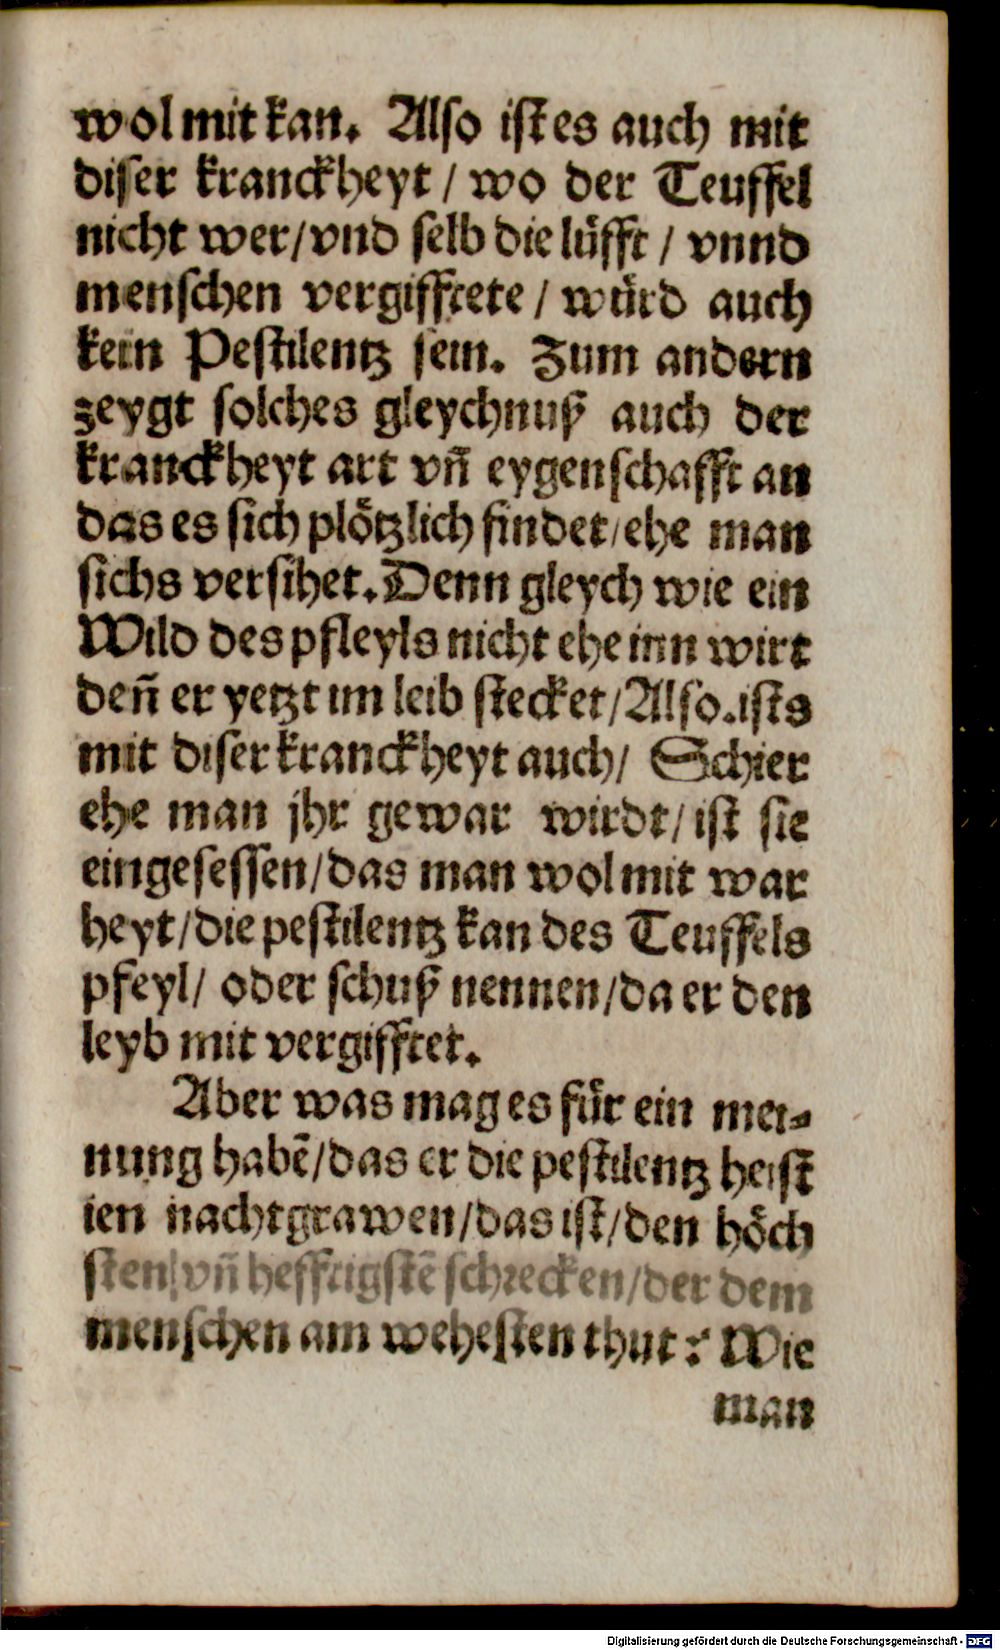 wol mit kan. Also ist es auch mit
diser kranckheyt / wo der Teuffel
nicht wer/vnd selb die lüfft / vnnd
menschen vergifftete / würd auch
kein Pestilentz sein. Zum andern
zeygt solches gleychnuß auch der
kranckheyt art vn̄ eygenschafft an
das es sich plötzlich findet/ehe man
sichs versihet. Denn gleych wie ein
Wild des pfleyls nicht ehe inn wirt
den̄ er yetzt im leib stecket/Also.ists
mit diser kranckheyt auch/ Schier
ehe man jhr gewar wirdt/ist sie
eingesessen/das man wol mit war
heyt/die pestilentz kan des Teuffels
pfeyl/ oder schuß nennen/da er den
leyb mit vergifftet.
Aber was mag es für ein mei-
nung habē/das er die pestilentz heist
ien nachtgrawen/das ist/den höch
sten/vn̄ hefftigstē schrecken/der dem
menschen am wehesten thut: Wie
man
Digitalisierung gefördert durch die Deutsche Forschungsgemeinschaft - DFG